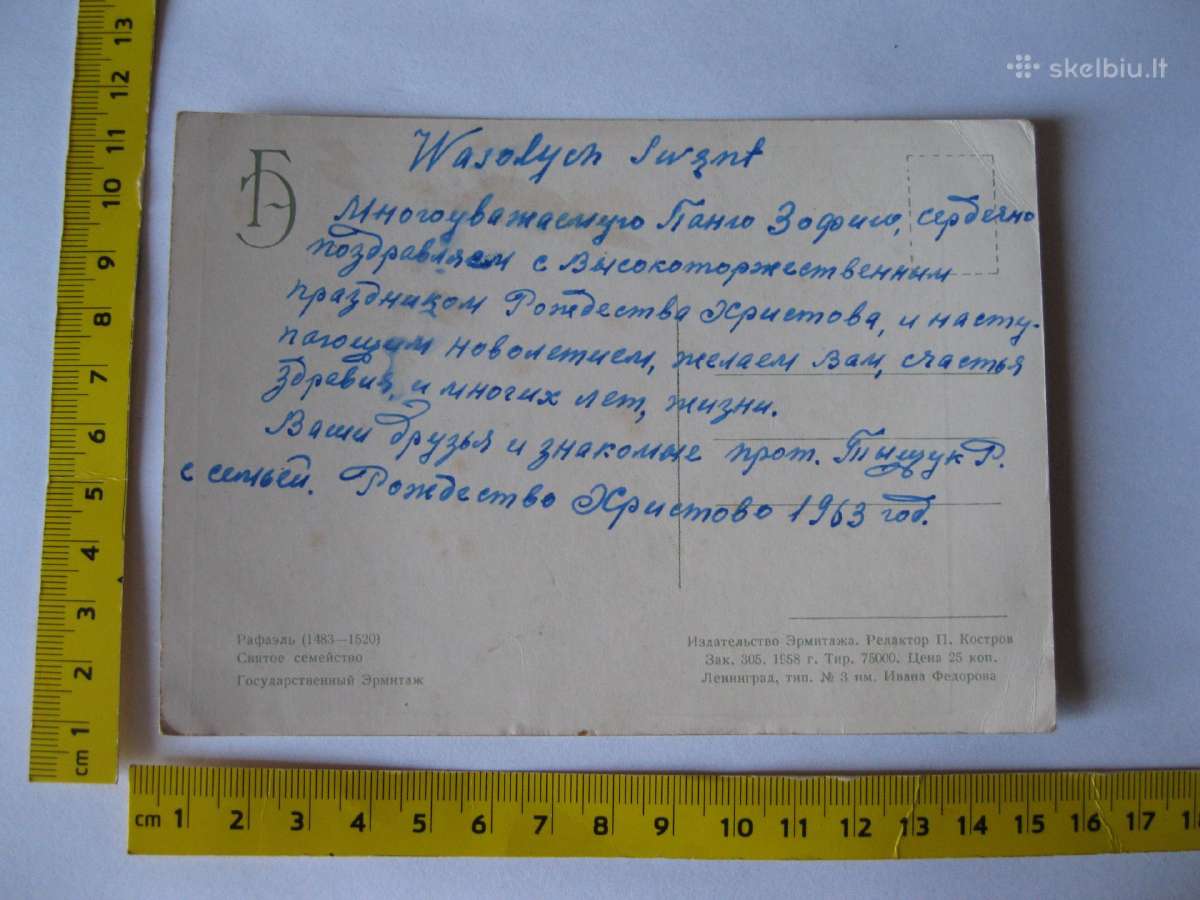 skelbiu.lt
Wasolych Swznt
Многоуважаемую Панго Зофию, сердечно
поздравляем с высокоторжественным
праздником Рождества Христова, и насту-
пающим новолетием, желаем Вам, счастья
здравия, и многих лет, жизни.
Ваши друзья и знакомые прот. Тыщук Р.
с семьей. Рождество Христово 1963 год.
Рафаэль (1483—1520)
Святое семейство
Государственный Эрмитаж
Издательство Эрмитажа. Редактор П. Костров
Зак. 305. 1958 г. Тир. 75000. Цена 25 коп.
Ленинград, тип. № 3 им. Ивана Федорова
13
12
11
10
9
8
7
6
5
4
3
2
1
cm
cm 1 2 3 4 5 6 7 8 9 10 11 12 13 14 15 16 17